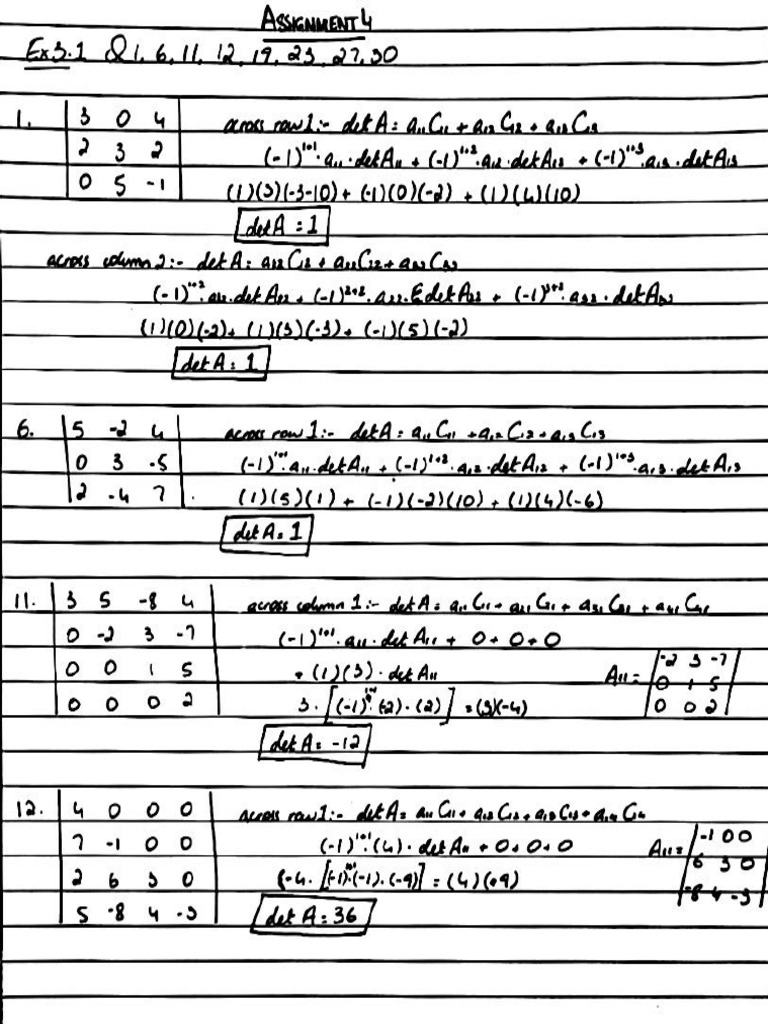 ASSIGNMENT 4
Ex 3.1 Q 1, 6, 11, 12, 19, 23, 27, 30
1. | 3 0 4 | across row 1:- det A = a₁₁C₁₁ + a₁₂C₁₂ + a₁₃C₁₃
| 2 3 2 | (-1)¹⁺¹·a₁₁·detA₁₁ + (-1)¹⁺²·a₁₂·detA₁₂ + (-1)¹⁺³·a₁₃·detA₁₃
| 0 5 -1 | (1)(3)(-3-10) + (-1)(0)(-2) + (1)(4)(10)
det A = 1
across column 2:- det A = a₁₂C₁₂ + a₂₂C₂₂ + a₃₂C₃₂
(-1)¹⁺²·a₁₂·detA₁₂ + (-1)²⁺²·a₂₂·detA₂₂ + (-1)³⁺²·a₃₂·detA₃₂
(1)(0)(-2) + (1)(3)(-3) + (-1)(5)(-2)
det A = 1
6. | 5 -2 4 | across row 1:- det A = a₁₁C₁₁ + a₁₂C₁₂ + a₁₃C₁₃
| 0 3 -5 | (-1)¹⁺¹·a₁₁·detA₁₁ + (-1)¹⁺²·a₁₂·detA₁₂ + (-1)¹⁺³·a₁₃·detA₁₃
| 2 -4 7 | (1)(5)(1) + (-1)(-2)(10) + (1)(4)(-6)
det A = 1
11. | 3 5 -8 4 | across column 1:- det A = a₁₁C₁₁ + a₂₁C₂₁ + a₃₁C₃₁ + a₄₁C₄₁
| 0 -2 3 -7 | (-1)¹⁺¹·a₁₁·detA₁₁ + 0 + 0 + 0
| 0 0 1 5 | (1)(3)·detA₁₁ A₁₁ = | -2 3 -7 |
| 0 1 5 |
| 0 0 0 2 | 3·[(-1)¹⁺¹·(-2)·(2)] = (3)(-4) | 0 0 2 |
det A = -12
12. | 4 0 0 0 | across row 1:- det A = a₁₁C₁₁ + a₁₂C₁₂ + a₁₃C₁₃ + a₁₄C₁₄
| 7 -1 0 0 | (-1)¹⁺¹·(4)·detA₁₁ + 0 + 0 + 0 A₁₁ = | -1 0 0 |
| 6 3 0 |
| 2 6 3 0 | 4·[(-1)¹⁺¹·(-1)·(-9)] = (4)(9) | -8 4 -3 |
| 5 -8 4 -3 | det A = 36